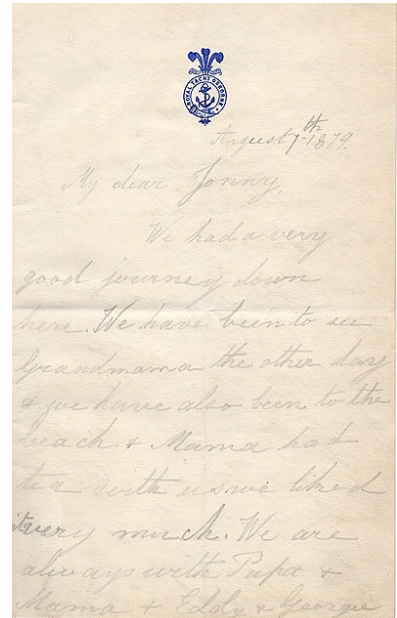 ROYAL YACHT OSBORNE
August 7th 1879.
My dear Jonny,
We had a very
good journey down
here. We have been to see
Grandmama the other day
& we have also been to the
beach & Mama had
tea with us we liked
it very much. We are
always with Papa &
Mama & Eddy & Georgie